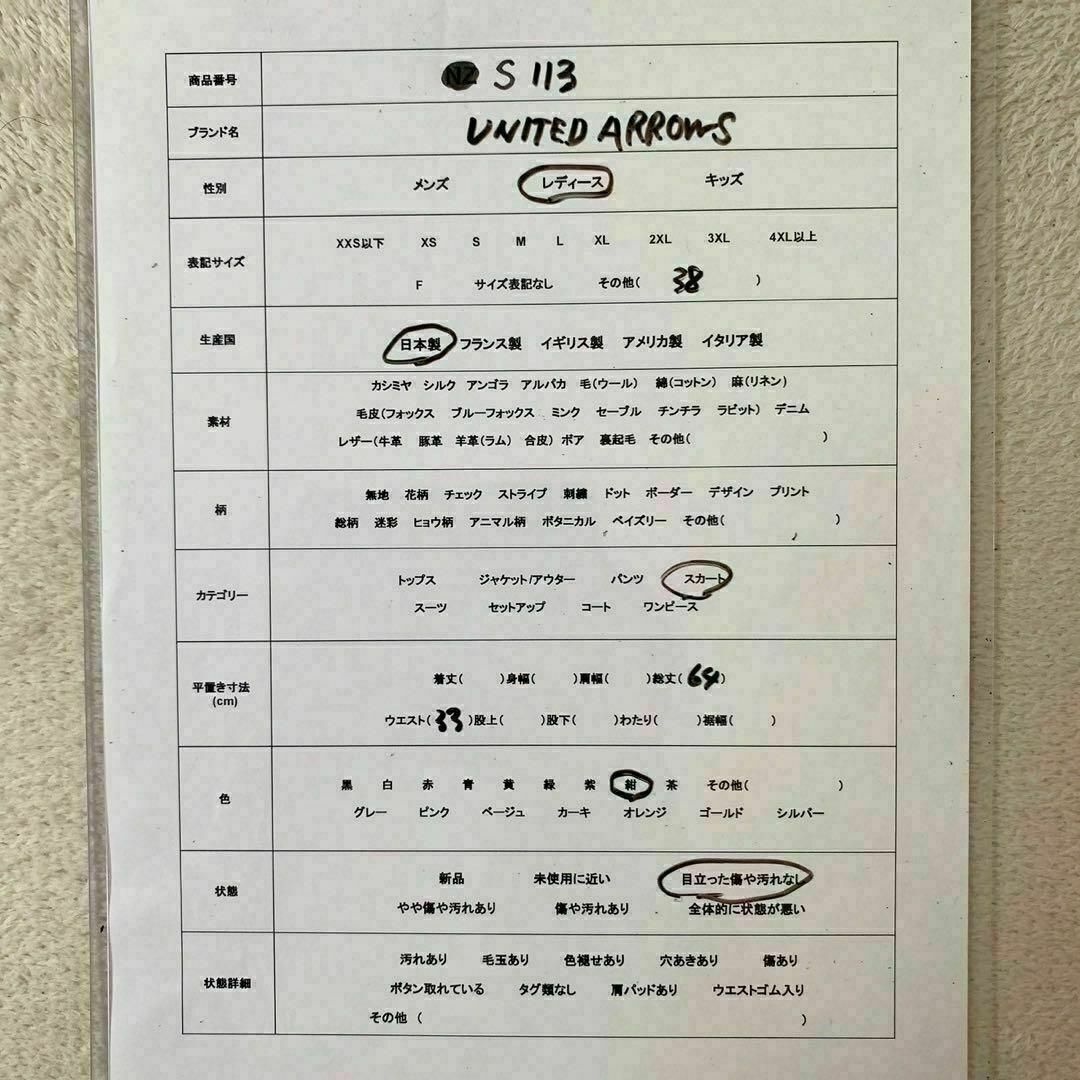 商品番号 NZ S 113
ブランド名 UNITED ARROWS
性別 メンズ レディース キッズ
XXS以下 XS S M L XL 2XL 3XL 4XL以上
表記サイズ
F サイズ表記なし その他( 38 )
生産国 日本製 フランス製 イギリス製 アメリカ製 イタリア製
カシミヤ シルク アンゴラ アルパカ 毛(ウール) 綿(コットン) 麻(リネン)
素材 毛皮(フォックス ブルーフォックス ミンク セーブル チンチラ ラビット) デニム
レザー(牛革 豚革 羊革(ラム) 合皮) ボア 裏起毛 その他( )
無地 花柄 チェック ストライプ 刺繍 ドット ボーダー デザイン プリント
柄
総柄 迷彩 ヒョウ柄 アニマル柄 ボタニカル ペイズリー その他( )
トップス ジャケット/アウター パンツ スカート
カテゴリー
スーツ セットアップ コート ワンピース
着丈( )身幅( )肩幅( )総丈( 64 )
平置き寸法
(cm)
ウエスト( 33 )股上( )股下( )わたり( )裾幅( )
黒 白 赤 青 黄 緑 紫 紺 茶 その他( )
色
グレー ピンク ベージュ カーキ オレンジ ゴールド シルバー
新品 未使用に近い 目立った傷や汚れなし
状態
やや傷や汚れあり 傷や汚れあり 全体的に状態が悪い
汚れあり 毛玉あり 色褪せあり 穴あきあり 傷あり
状態詳細 ボタン取れている タグ類なし 肩パッドあり ウエストゴム入り
その他 ( )